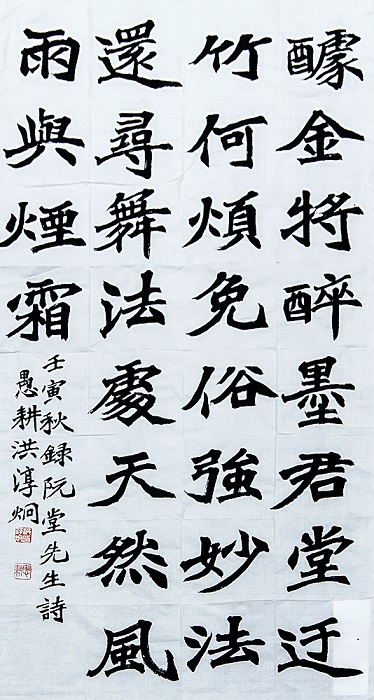 醵金將醉墨君堂迂
竹何煩免俗強妙法
還尋舞法處天然風
雨與煙霜
壬寅秋録阮堂先生詩
愚耕洪淳炯